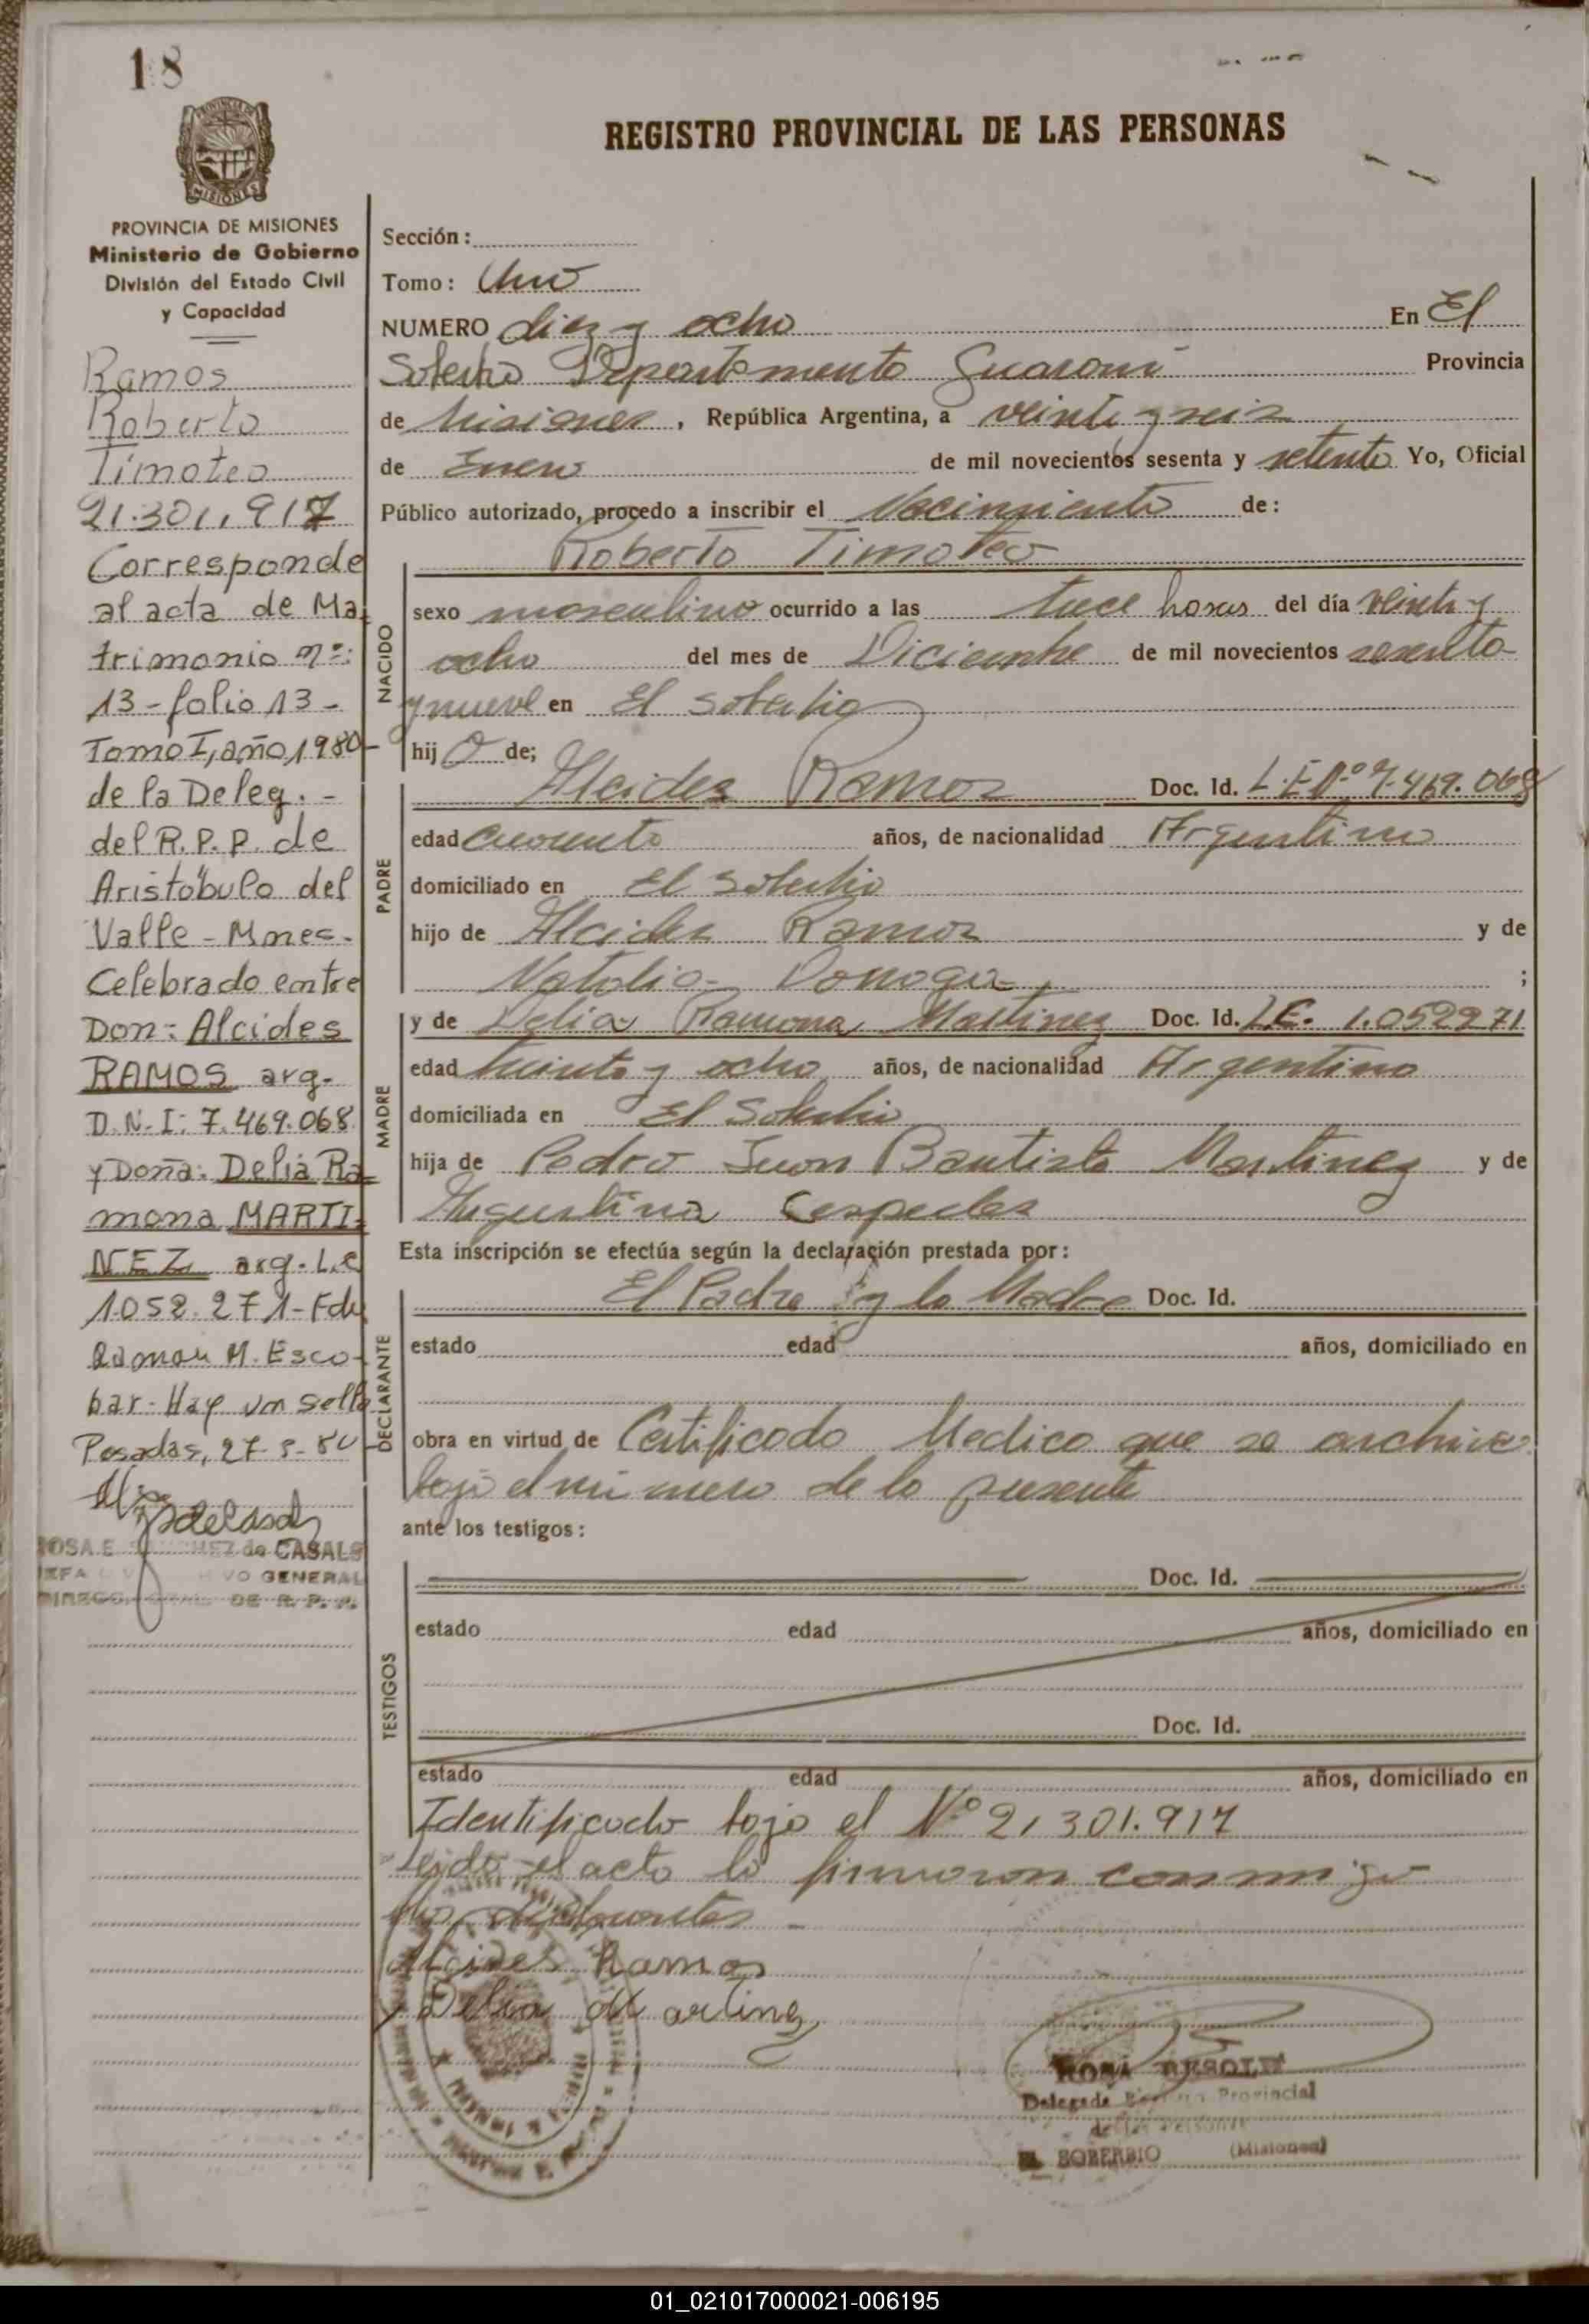 18
PROVINCIA DE MISIONES
Ministerio de Gobierno
División del Estado Civil
y Capacidad
Ramos
Roberto
Timoteo
21.301.917
Corresponde
al acta de Ma-
trimonio nº:
13 - folio 13 -
Tomo I, año 1980 -
de la Deleg. -
del R.P.P. de
Aristóbulo del
Valle - Mnes -
Celebrado entre
Don: Alcides
RAMOS arg.
D.N.I: 7.469.068
y Doña: Delia Ra-
mona MARTI-
NEZ arg. L.C
1.052.271 - Fdo
Ramon M. Esco-
bar - Hay un sello
Posadas, 27
ROSA E. de CASALS
GENERAL
DE R. P. P.
REGISTRO PROVINCIAL DE LAS PERSONAS
Sección:
Tomo: Uno
NUMERO diez y ocho En El
Soberbio Departamento Guarani Provincia
de Misiones, República Argentina, a veinte y seis
de Enero de mil novecientos sesenta y setenta Yo, Oficial
Público autorizado, procedo a inscribir el Nacimiento de:
Roberto Timoteo
NACIDO
sexo masculino ocurrido a las trece horas del día veinte y
ocho del mes de Diciembre de mil novecientos sesenta
y nueve en El Soberbio
hij o de;
PADRE
Alcides Ramos Doc. Id. L.E Nº 7.469.068
edad cuarenta años, de nacionalidad Argentino
domiciliado en El Soberbio
hijo de Alcides Ramos y de
Natalia ;
MADRE
y de Delia Ramona Martinez Doc. Id. L.C. 1.052971
edad treinta y ocho años, de nacionalidad Argentina
domiciliada en El Soberbio
hija de Pedro Juan Bautista Martinez y de
Augustina Cespedes
Esta inscripción se efectúa según la declaración prestada por:
DECLARANTE
El Padre y la Madre Doc. Id.
estado edad años, domiciliado en
obra en virtud de Certificado Medico que se archiva
bajo el numero de la presente
ante los testigos:
TESTIGOS
Doc. Id.
estado edad años, domiciliado en
Doc. Id.
estado edad años, domiciliado en
Identificado bajo el Nº 21301.917
Leido el acta la firmaron conmigo
los declarantes
Alcides Ramos
y Delia Martinez
ROSA
Delegada Provincial
de las Personas
EL SOBERBIO (Misiones)
01_021017000021-006195